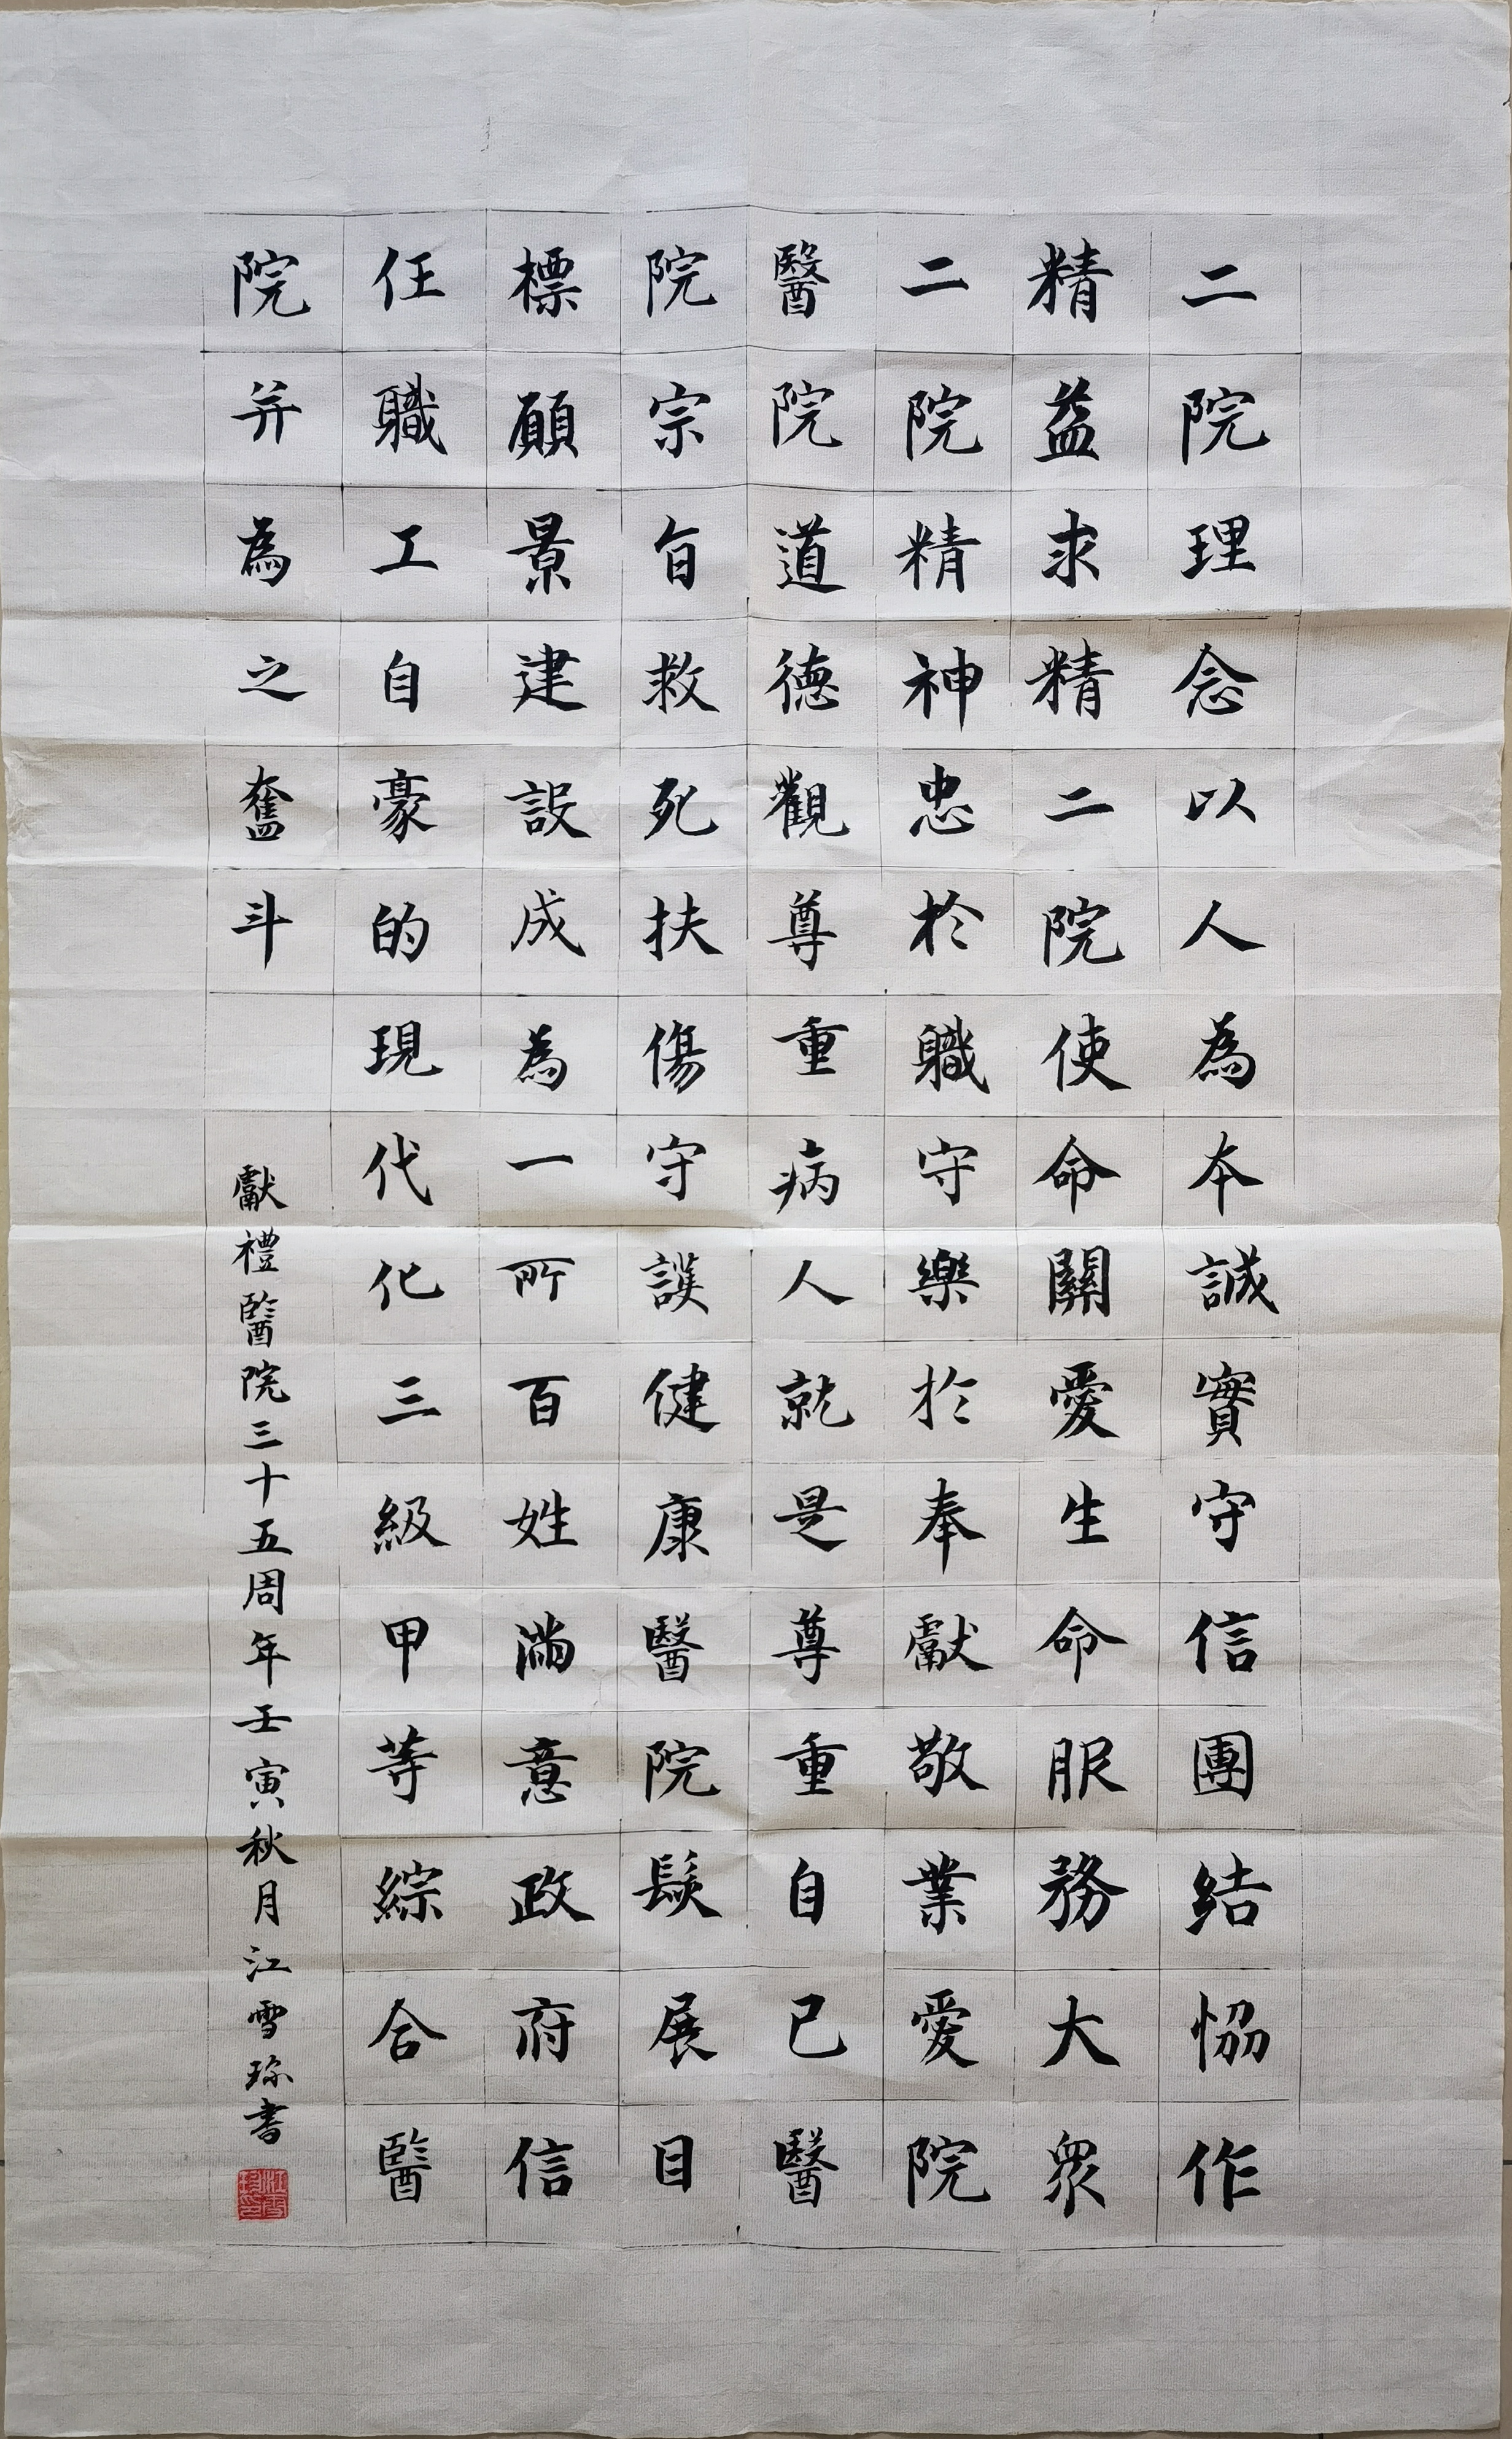 二院理念以人為本誠實守信團結恊作
精益求精二院使命關愛生命服務大眾
二院精神忠於職守樂於奉獻敬業愛院
醫院道德觀尊重病人就是尊重自己醫
院宗旨救死扶傷守護健康醫院發展目
標願景建設成為一所百姓滿意政府信
任職工自豪的現代化三級甲等綜合醫
院并為之奮斗
獻禮醫院三十五周年壬寅秋月江雪珎書